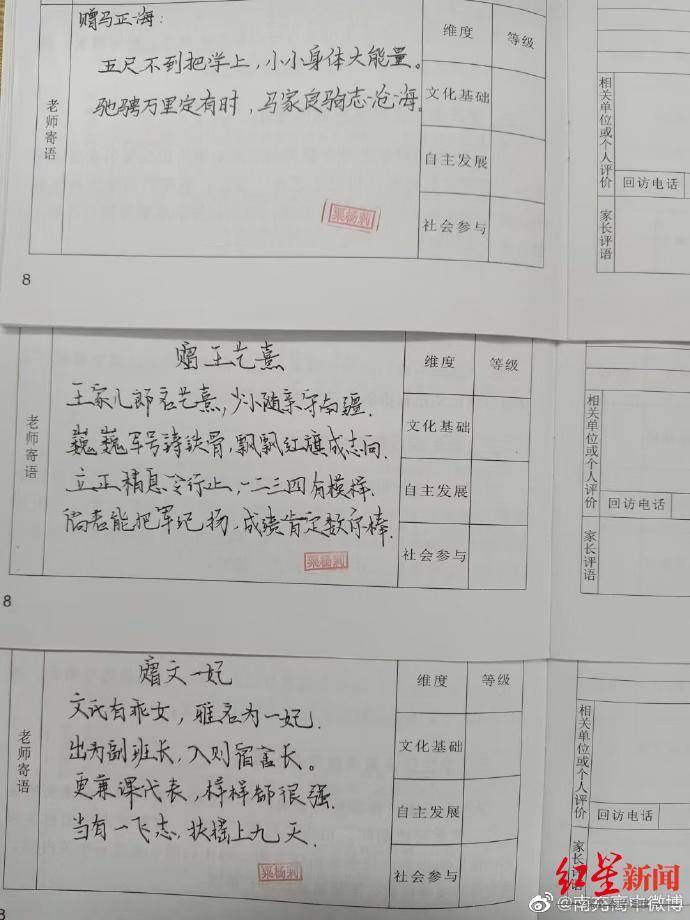 赠马正海：
五尺不到把学上，小小身体大能量。
驰骋万里定有时，马家良驹志沧海。
老师寄语
维度 等级
文化基础
自主发展
社会参与
相关单位或个人评价
回访电话
家长评语
8
赠王艺熹
王家儿郎名艺熹，少小随亲守南疆.
巍巍军号铸铁骨，飘飘红旗成志向.
立正稍息令行止，一二三四有模样.
倘若能把军纪扬，成绩肯定数你棒.
老师寄语
维度 等级
文化基础
自主发展
社会参与
相关单位或个人评价
回访电话
家长评语
8
赠文一妃
文氏有乖女，雅名为一妃.
出为副班长，入则宿舍长。
更兼课代表，样样都很强.
当有一飞志，扶摇上九天.
老师寄语
维度 等级
文化基础
自主发展
社会参与
相关单位或个人评价
回访电话
家长
8
红星新闻
@南充高中微博